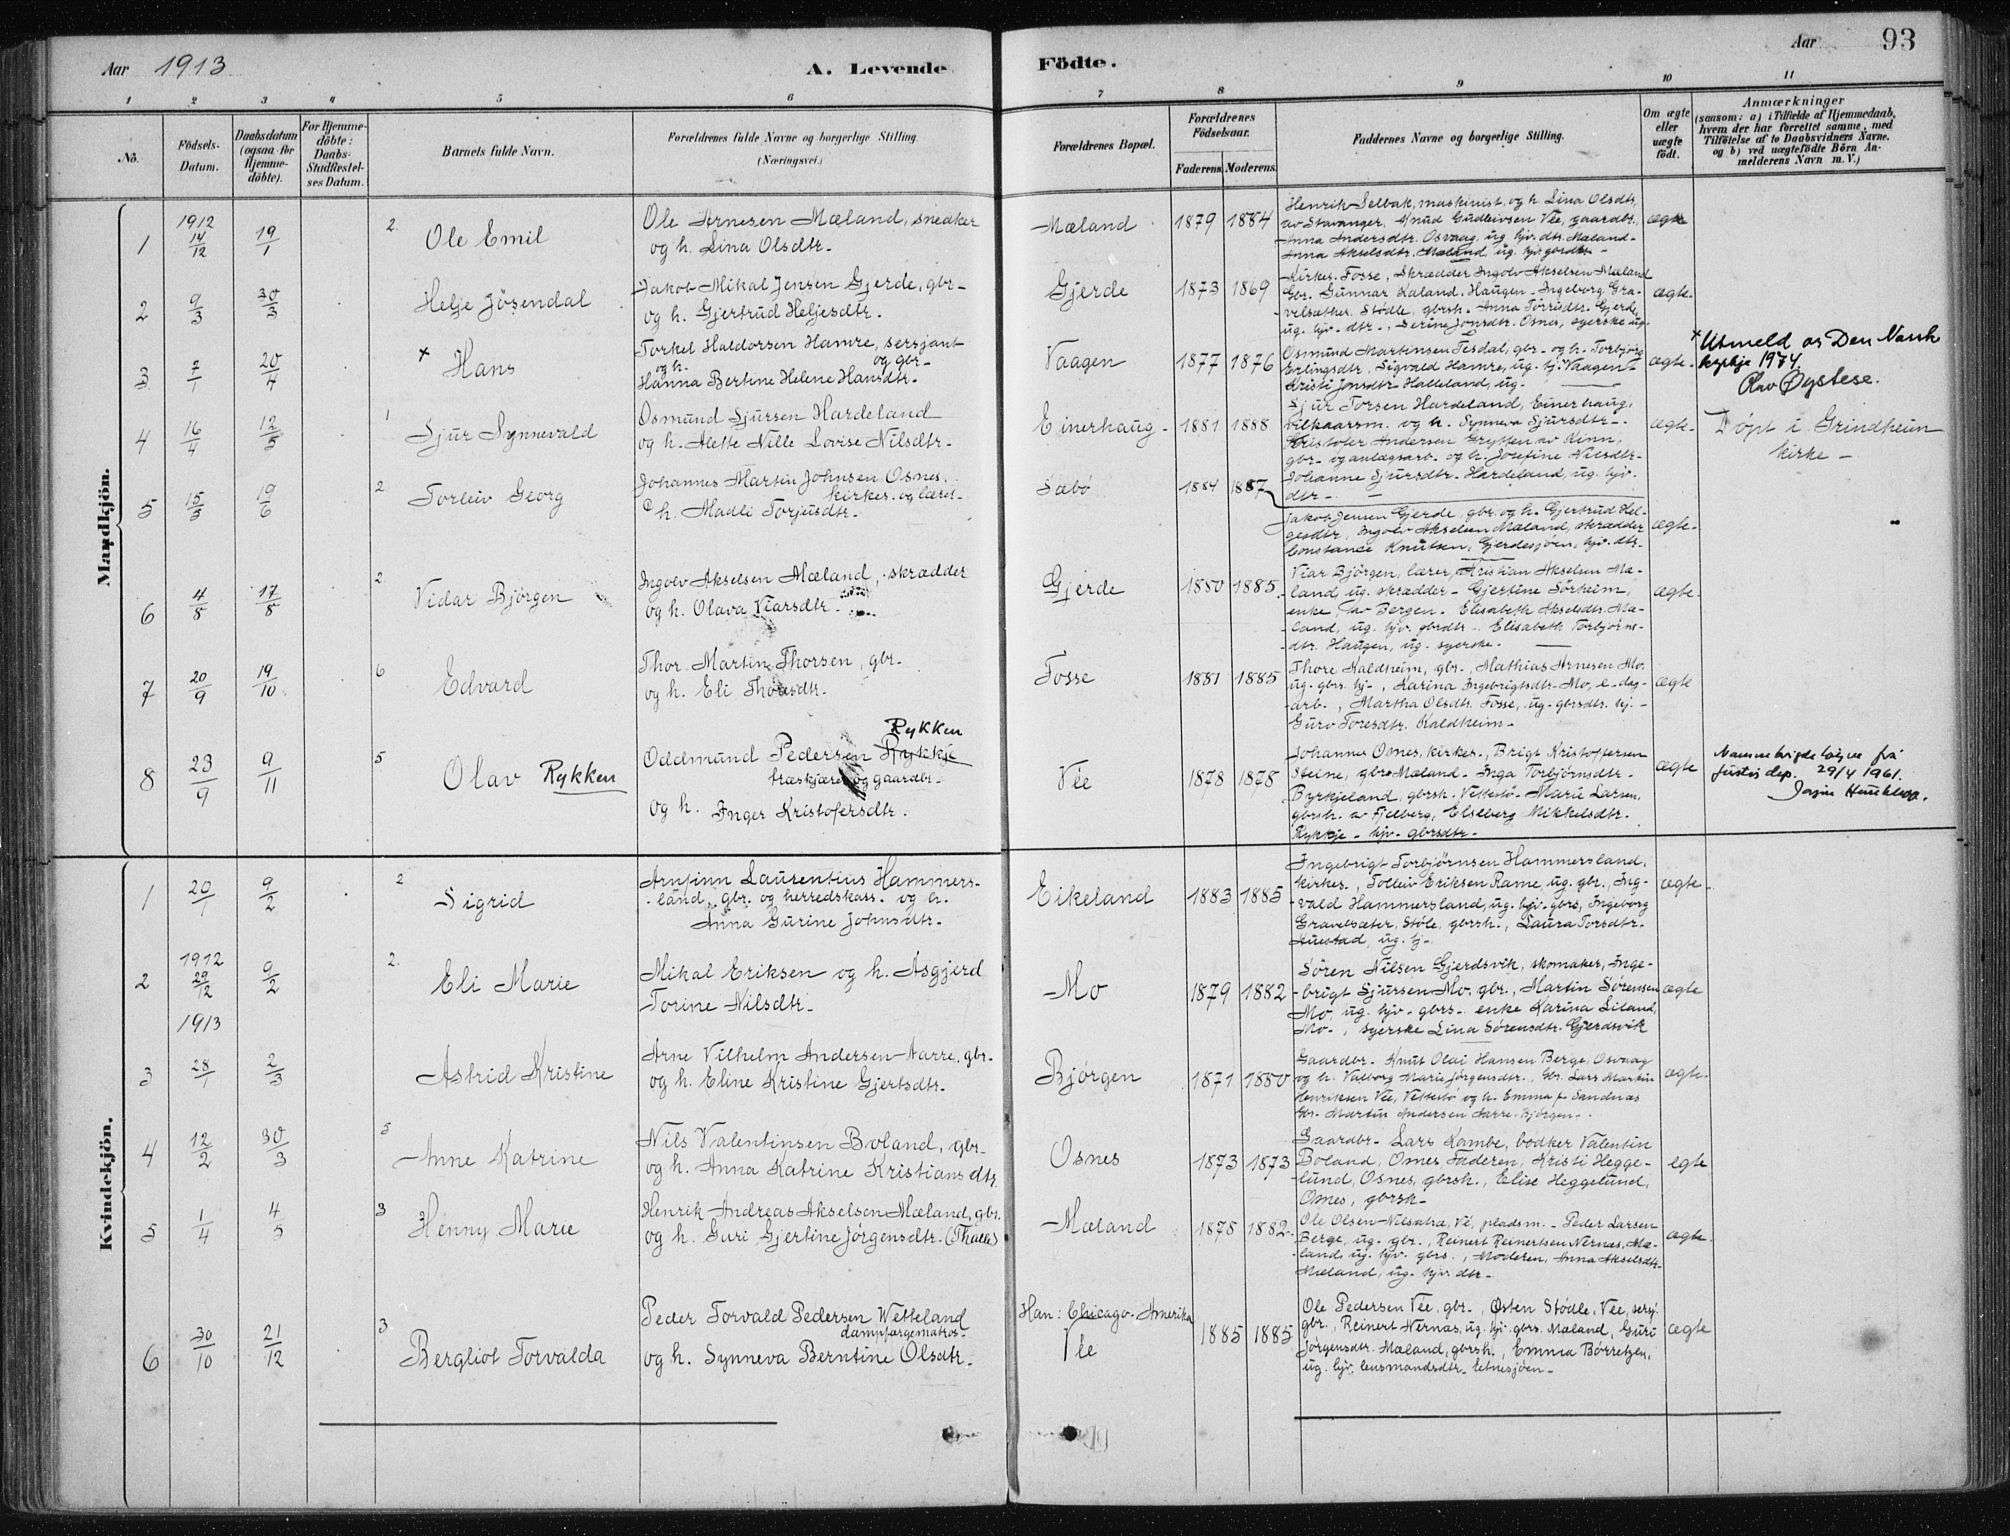 Aar 1913
A. Levende Födte.
Aar 93
1 2 3 4 5 6 7 8 9 10 11
No.
Födsels-Datum.
Daabsdatum (ogsaa for Hjemme-döbte).
For Hjemme-döbte: Daabs-Stadfæstel-ses Datum.
Barnets fulde Navn.
Forældrenes fulde Navne og borgerlige Stilling.
(Næringsvei.)
Forældrenes Bopæl.
Forældrenes Födselsaar.
Faderens. Moderens.
Faddernes Navne og borgerlige Stilling.
Om ægte eller uægte födt.
Anmærkninger
(saasom: a) i Tilfælde af Hjemmedaab,
hvem der har forrettet samme, med
Tilföielse af to Daabsvidners Navne,
og b) ved uægtefödte Börn An-
melderens Navn m. V.)
Mandkjön.
1 1912 14/12 19/1 2. Ole Emil
Ole Arnesen Mæland, snedker
og h. Lina Olsdtr.
Mæland 1879 1884
Henrik Selbak, maskinist, og h. Lina Olsdtr,
av Stavanger, Knud Gudleivsen Vée, gaardbr.
Anna Andersdtr. Osvaag, ug. hjv. dtr. Mæland-
Anna Akselsdtr. Mæland, ug. hjv. gbrdtr -
ægte
2 9/3 30/3 Helje Jösendal
Jakob Mikal Jensen Gjerde, gbr-
og h. Gjertrud Heljesdtr.
Gjerde 1873 1869
Kirkes. Fosse, Skrædder Ingolv Akselsen Mæland
Gbr. Gunnar Kaland, Haugen - Ingeborg Gra-
velsæther, Stödle, gbrsh. - Anna Torresdtr. Gjerde,
ug. hjv. dtr., Serina Jonsdtr. Osnes, syerske ug.
ægte-
3 7/1 20/4 x Hans
Torkel Haldorsen Hamre, sersjant
og gbr-
og h.
Hanna Bertine Helene Hansdtr.
Vaagen 1877 1876
Osmund Martinsen Tesdal, gbr- og h. Torbjörg
Erlingsdtr, Sigvald Hamre, ug. hj. Vaagen -
Kristi Jonsdtr. Halleland, ug.
ægte-
x Utmeld av Den Norsk
kyrkje 1974.
Olav Øystese.
4 16/4 12/5 1 Sjur Synnevald
Osmund Sjursen Hardeland
og h. Alette Nille Lovise Nilsdtr-
Einerhaug- 1881 1888
Sjur Torsen Hardeland, Einerhaug,
vilkaarsm. og h. Synneva Sjursdtr-
Kristofer Andersen Grytten av Kinn,
gbr- og anlægsarb. og h. Josefine Nilsdtr-
Johanne Sjursdtr. Hardeland, ug. hjv.
dtr-
ægte-
Döpt i Grindheim
kirke -
5 15/5 19/6 2 Torleiv Georg
Johannes Martin Johnsen Osnes,
kirkes. og lærer-
h. Madli Torjusdtr-
Sæbö 1884 1887
Jakob Jensen Gjerde, gbr. og h. Gjertrud Hel-
gesdtr, Ingolv Akselsen Mæland, skrædder
Constance Knutsen, Gjerdesjöen, hjv. dtr-
ægte-
6 4/8 17/8 2. Vidar Björgen
Ingolv Akselsen Mæland, skrædder
og h. Olava Viarsdtr -
Gjerde 1880 1885.
Viar Björgen, lærer, Kristian Akselsen Mæ-
land ug. skrædder - Gjertine Sörheim,
enke, av Bergen. Elisabeth Akselsdtr. Mæ-
land, ug. hjv. gbrdtr - Elisabeth Torbjörns-
dtr. Haugen, ug. syerske.
ægte-
7 20/9 19/10 6 Edvard
Thor Martin Thorsen, gbr-
og h. Eli Thorsdtr-
Fosse 1881 1885
Thore Kaldheim, gbr-, Mathias Arnesen Mo,
ug. gbrs. hj-, Karina Ingebrigtsdtr. Mo, e-dag-
arb., Martha Olsdtr. Fosse, ug. gbrsdtr. hj. -
Guro Toresdtr. Kaldheim-
ægte
8 23/9 9/11 5 Olav Rykken
Rykken
Oddmund Pedersen Rykkje
træskjærer og gaardbr-
og h. Inger Kristofersdtr.
Vée 1878 1878
Johannes Osnes, kirkes., Brigt Kristoffersen
Steine, gbr Mæland - Inga Torbjörnsdtr -
Byrkjeland, gbrsh. Vettestö- Marie Larsen,
gbrsh. av Fjelberg, Elseberg Mikkelsdtr.
Rykkje - hjv. gbrsdtr-
ægte
Namnebrigde løyve frå
Justis dep. 29/4 1961.
Kvindekjön.
1 20/1 9/2 2 Sigrid
Arntinn Laurentius Hammers-
land, gbr. og herredskass. og h.
Anna Gurine Johnsdtr-
Eikeland 1883 1885
Ingebrigt Torbjörnsen Hammersland,
kirkes., Tolleiv Eriksen Rame, ug. gbr., Ing-
vald Hammersland, ug. hjv. gbrs, Ingeborg
Gravelsæter, Stöle, gbrsh., Laura Torsdtr-
ug. hj-
ægte-
2 1912 29/12 9/2 2. Eli Marie
Mikal Eriksen og h. Asgjerd
Torine Nilsdtr-
Mo 1879 1882
Sören Nilsen Gjerdsvik, skomaker, Inge-
brigt Sjursen Mo, gbr., Martin Sörensen
Mo, ug. hjv. gbrs- enke Karina Liland,
Mo-, syerske Lina Sörensdtr. Gjerdsvik
ægte
1913
3 28/1 2/3 Astrid Kristine
Arne Vilhelm Andersen Aarre, gbr-
og h. Eline Kristine Gjertsdtr.
Björgen 1871 1880
Gaardbr. Knut Olai Hansen Berge, Osvaag
og h. Valborg Marie Jörgensdtr., Gbr. Lars Martin
Henriksen Vée, Vettestö og h. Emma f. Sandenæs
Gbr. Martin Andersen Aarre - Björgen -
ægte
4 12/2 30/3 5 Anne Katrine
Nils Valentinsen Boland, gbr-
og h. Anna Katrine Kristiansdtr.
Osnes 1873 1873
Gaardbr- Lars Kambe, bödker Valentin
Boland, Osnes, Faderen, Kristi Hegge-
lund, Osnes, gbrsh., Elise Heggelund,
Osnes, gbrsh-
egte
5 1/4 4/5 3 Henny Marie
Henrik Andreas Akselsen Mæland, gbr.
og h. Guri Gjertine Jörgensdtr. (Thalle)
Mæland 1878 1882
Ole Olsen Vé, pladsm. - Peder Larsen
Berge, ug. gbr., Reinert Reinertsen Nernæs, Mæ-
land, ug. hjv. gbrs., Moderen, Anna Akselsdtr
Mæland, ug. hjv. dtr-
ægte
6 30/10 21/12 3 Bergliot Torvalda
Peder Torvald Pedersen Vetteland
dampfærgematros-
og h. Synneva Berntine Olsdtr-
Han: Chicago- Amerika
Vée 1885 1885
Ole Pedersen Vée, gbr-, Osten Stödle, Vée, sersj.
gbr., Reinert Nernæs, ug. hjv. gbrs. Mæland, Guri
Jörgensdtr. Mæland, gbrsh., Emma Börretzen,
ug. hjv. lensmandsdtr. Etnesjöen-
ægte